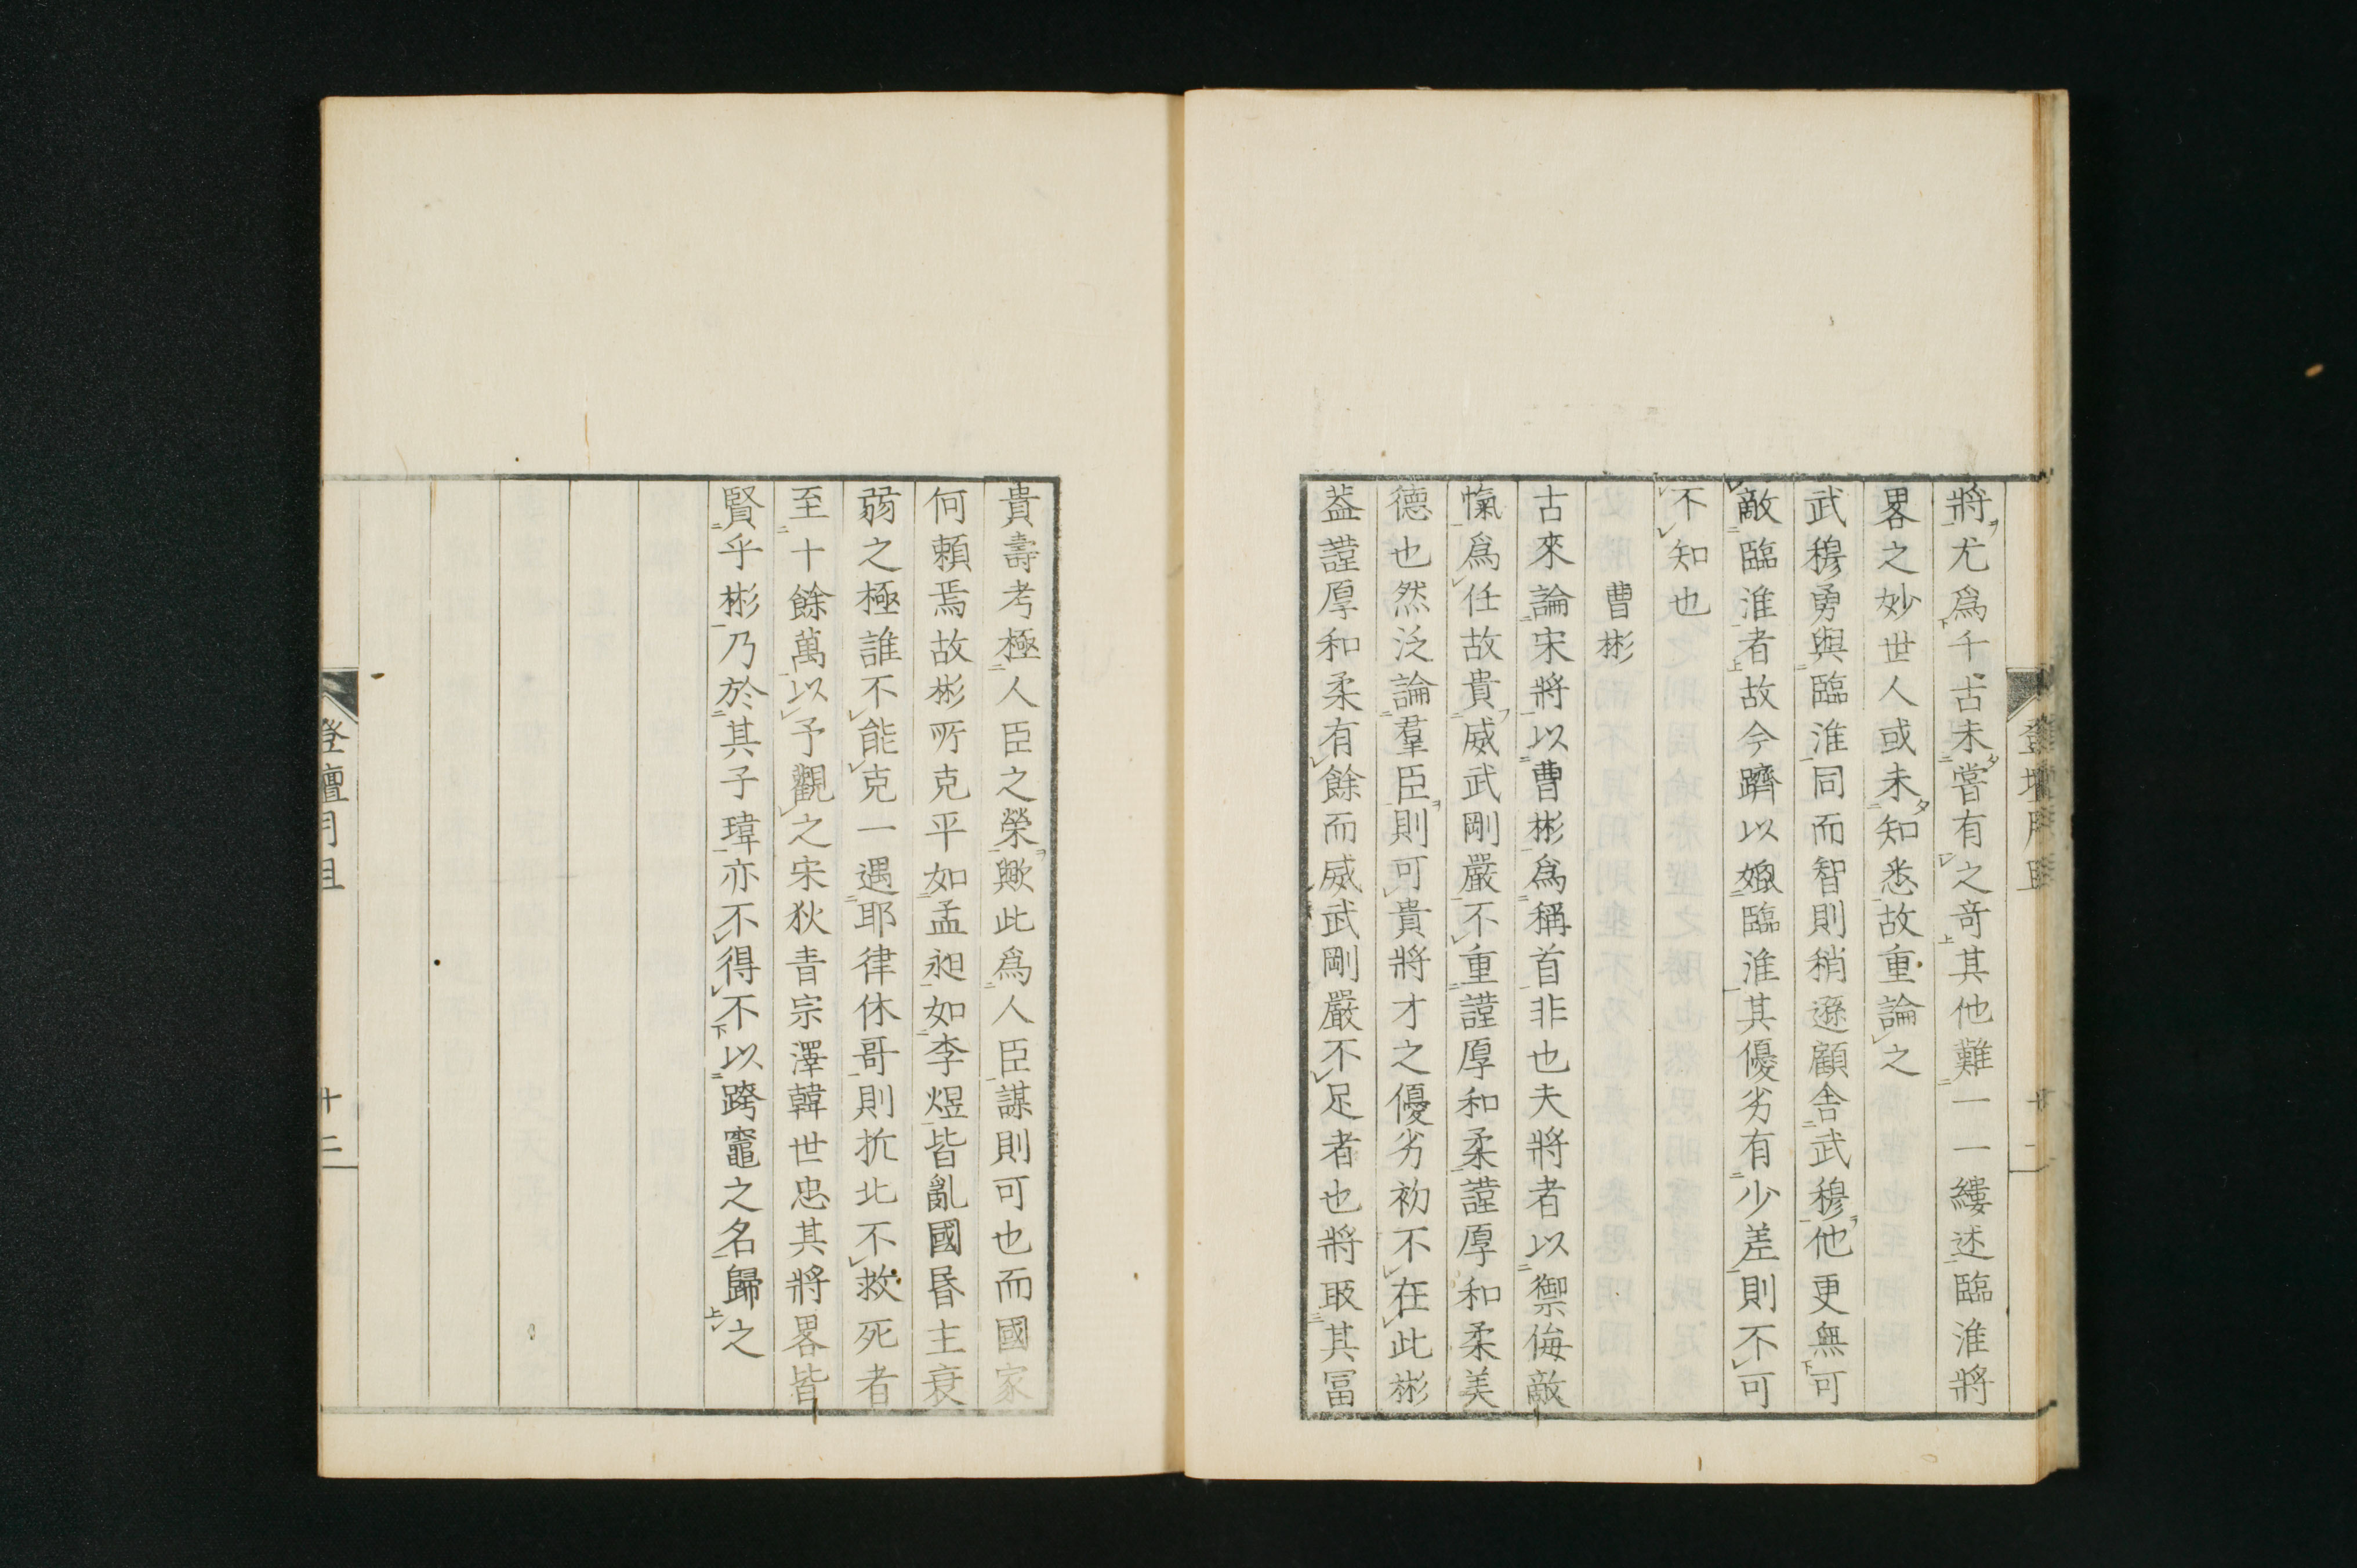 將尤爲千古未嘗有之奇其他難一一縷述臨淮將
畧之妙世人或未知悉故重論之
武穆勇與臨淮同而智則稍遜顧舍武穆他更無可
敵臨淮者故今躋以媲臨淮其優劣有少差則不可
不知也
曹彬
古來論宋將以曹彬爲稱首非也夫將者以禦侮敵
愾爲任故貴威武剛嚴不重謹厚和柔謹厚和柔美
德也然泛論羣臣則可貴將才之優劣初不在此彬
蓋謹厚和柔有餘而威武剛嚴不足者也將取其冨
貴壽考極人臣之榮歟此爲人臣謀則可也而國家
何頼焉故彬所克平如孟昶如李煜皆亂國昬主衰
弱之極誰不能克一遇耶律休哥則抗北不救死者
至十餘萬以予觀之宋狄青宗澤韓世忠其將畧皆
賢乎彬乃於其子瑋亦不得不以跨竈之名歸之
登壇月旦
十二